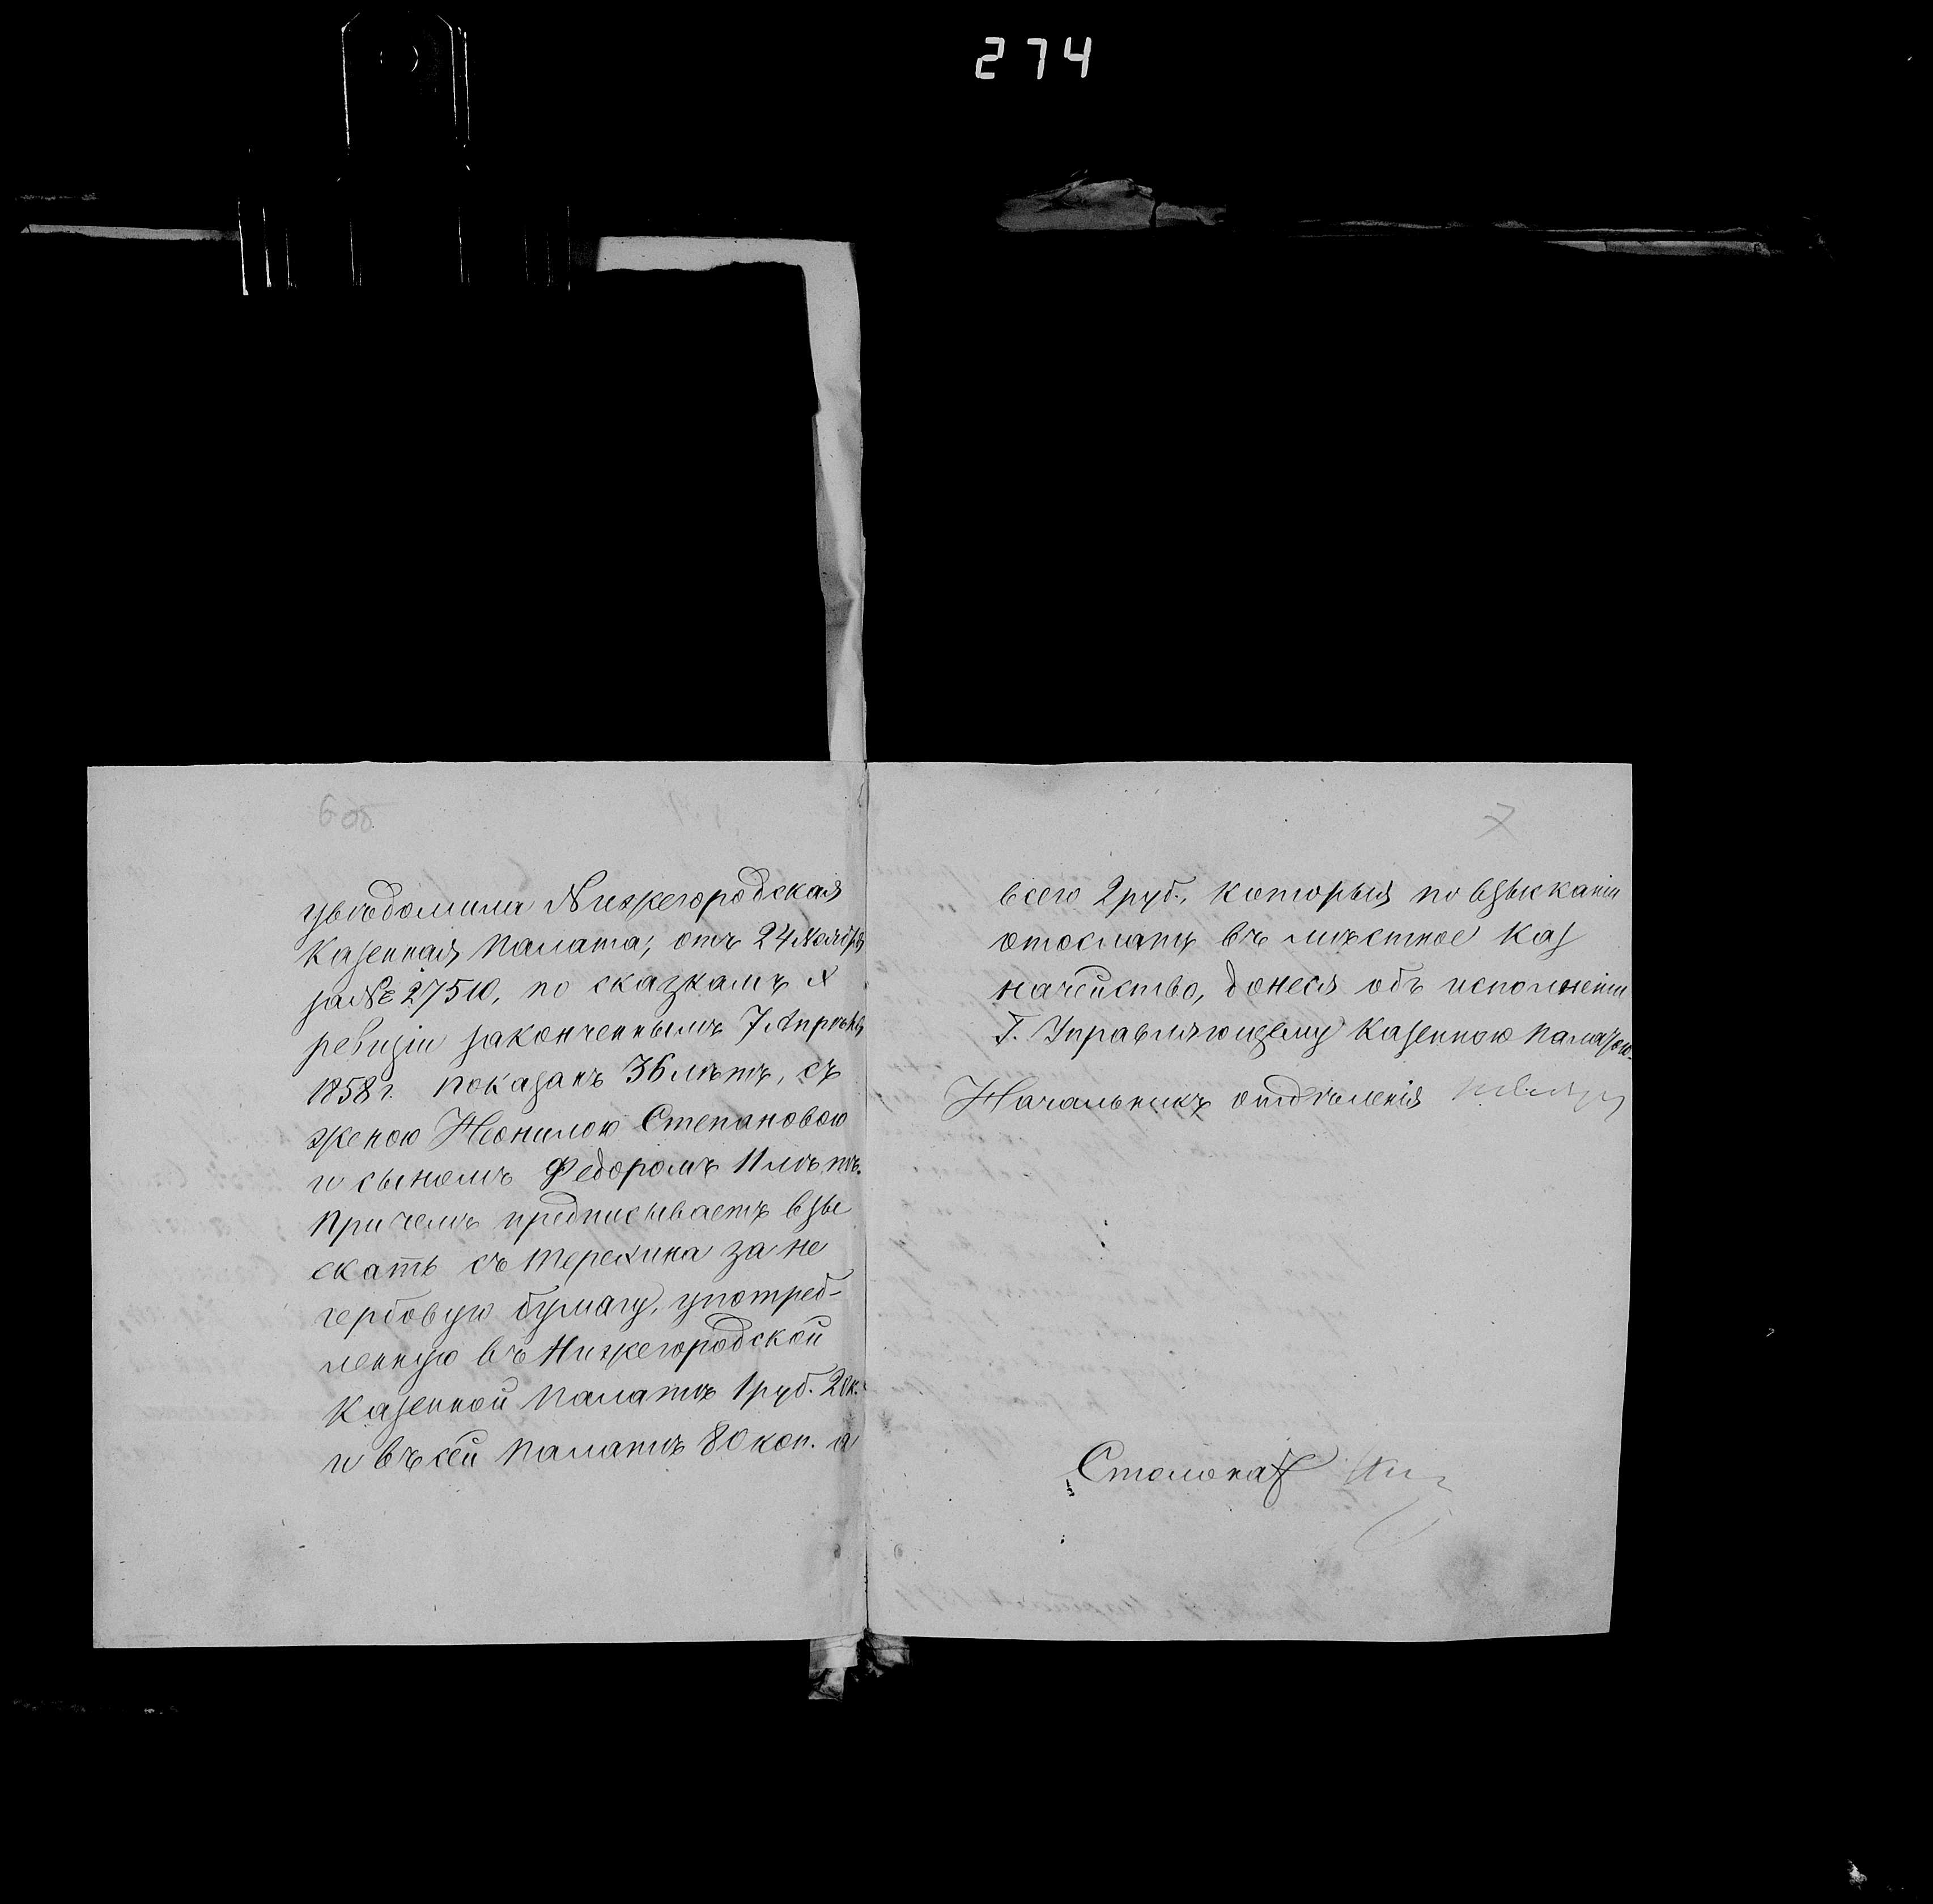 274
6 об.
увѣдомила Нижегородская
Казенная Палата, отъ 24 Ноября
за № 27510, по сказкамъ X
ревизіи законченнымъ 7 Апрѣля
1858 г. показанъ 36 лѣтъ, съ
женою Неонилою Степановою
и сыномъ Федоромъ 11 лѣтъ.
При чемъ предписываетъ взы
скать съ Терехина за не
гербовую бумагу, употреб-
ленную въ Нижегородской
Казенной Палатѣ 1 руб. 20 к.
и въ сей Палатѣ 80 коп. а
7
всего 2 руб., которыя по взысканіи
отослать въ мѣстное Каз
начейство, донеся объ исполненіи
Г. Управляющему Казенною Палатою.
Начальникъ отдѣленія
Столонач